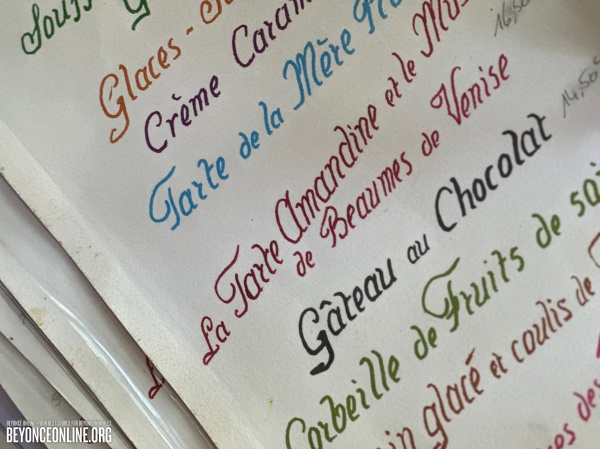 Glaces -
Crème
Tarte de la Mère
16,50
La Tarte Amandine et le
de Beaumes de Venise
14,50
Gâteau au Chocolat
Corbeille de Fruits de
glacé et coulis de
des
BEYONCEONLINE.ORG